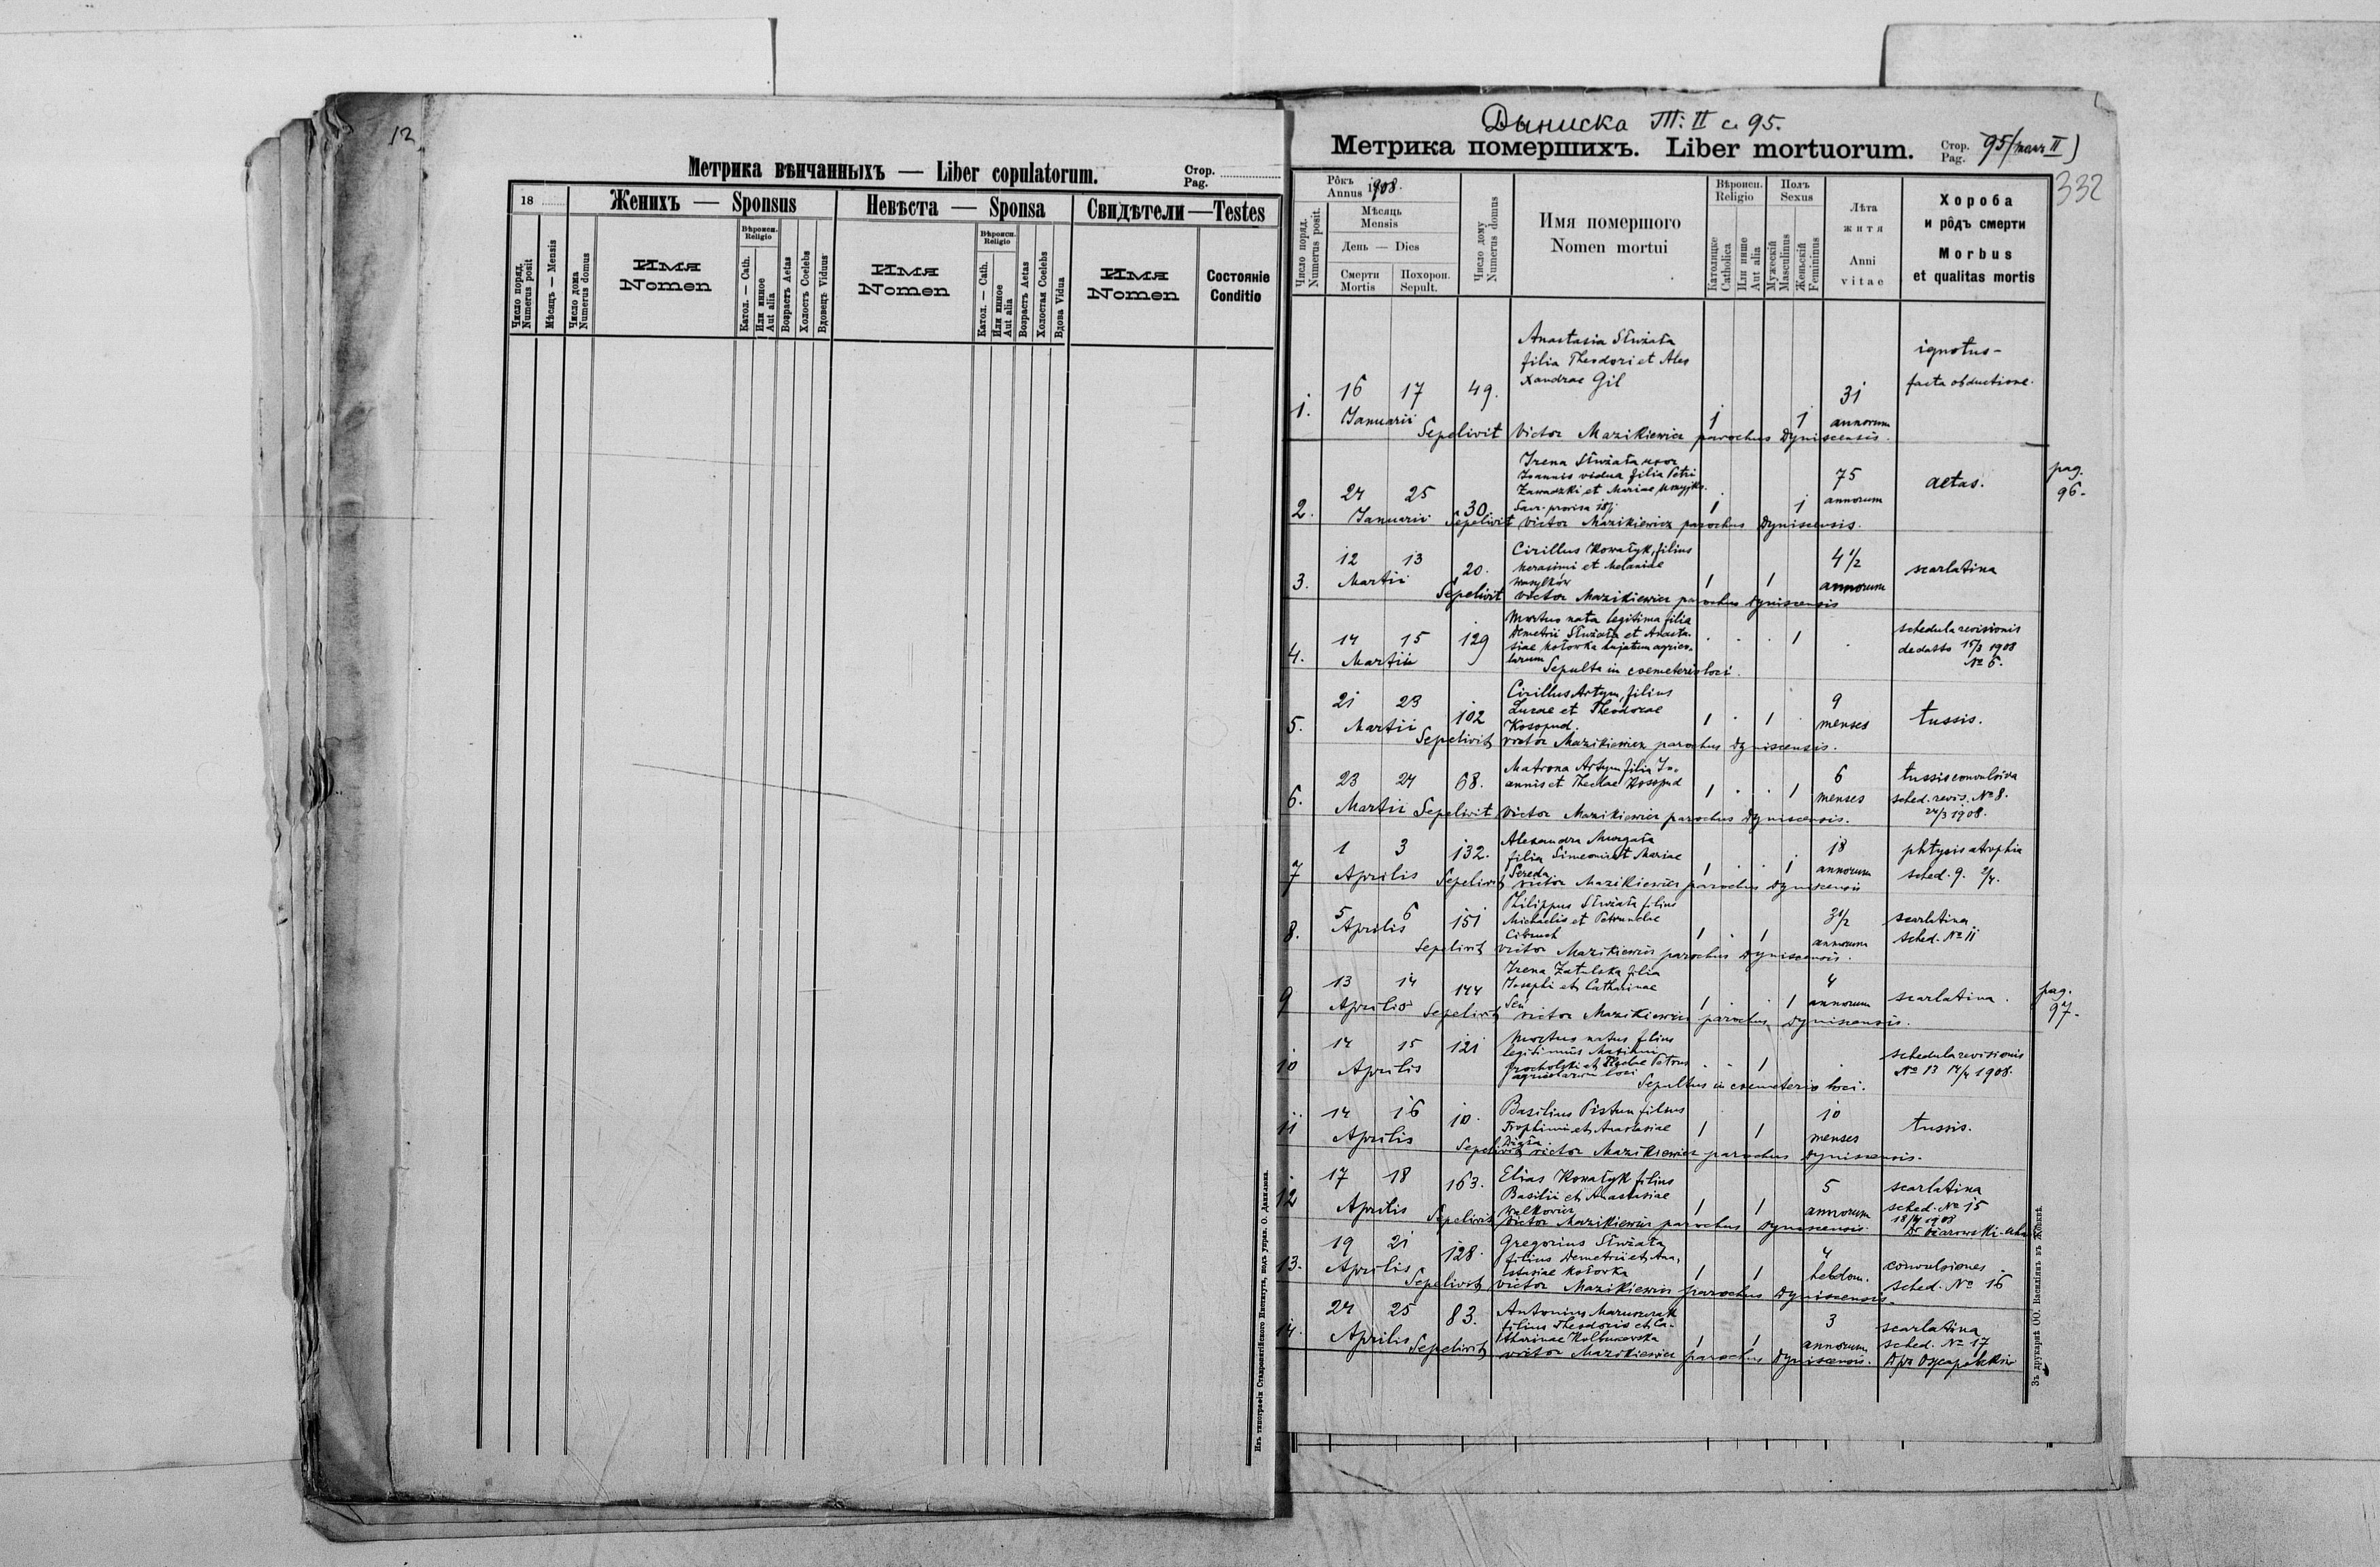 12
Метрика вѣнчанныхъ — Liber copulatorum.
Стор.
Pag.
18
Женихъ — Sponsus
Невѣста — Sponsa
Свидѣтели — Testes
Число поряд.
Numerus posit
Мѣсяцъ — Mensis
Число дома
Numerus domus
Имя
Nomen
Вѣроисп.
Religio
Катол. — Cath.
Или иное
Aut alia
Возрастъ Aetas
Холостъ Coelebs
Вдовецъ Viduus
Имя
Nomen
Вѣроисп.
Religio
Катол. — Cath.
Или иное
Aut alia
Возрастъ Aetas
Холостая Coelebs
Вдова Vidua
Имя
Nomen
Состояніе
Conditio
Изъ типографіи Ставропигійского Института, подъ управ. О. Данилюка.
Дыниска Т: II с. 95.
Метрика помершихъ. Liber mortuorum.
Стор.
Pag.
95
332
Рôкъ
Annus 1908.
Число поряд.
Numerus posit.
Мѣсяць
Mensis
День — Dies
Смерти
Mortis
Похорон.
Sepult.
Число дому
Numerus domus
Имя помершого
Nomen mortui
Вѣроисп.
Religio
Католицке
Catholica
Или инше
Aut alia
Полъ
Sexus
Мужескій
Masculinus
Женьскій
Femininus
Лѣта
житя
Anni
vitae
Хороба
и рôдъ смерти
Morbus
et qualitas mortis
Anastasia Stużata
filia Theodori et Alex
xandrae Gil
1. 16 17 49. 1 1 31
Januarii annorum
ignotus –
facta obductione.
Sepelivit Victor Mazikiewicz parochus Dyniscensis.
Irena Stużata uxor
Joannis vidua filia Petri
Zawadzki et Mariae
2. 24 25 30. 1 1 75
Januarii annorum
aetas.
pag.
96.
Sepelivit Victor Mazikiewicz parochus Dyniscensis.
Cirillus Kowałyk, filius
Herasimi et Melaniae
Wasylków
3. 12 13 20. 1 1 4 1/2
Martii annorum
scarlatina
Sepelivit Victor Mazikiewicz parochus Dyniscensis
Mortuo nata legitima filia
Demetrii Stużata et Anasta
siae Kotowka hujatum agrico-
larum
4. 14 15 129 1
Martii
schedula revisionis
de datto 15/3 1908
№ 6.
Sepulta in coemeterio loci.
Cirillus Artym, filius
Lucae et Theodorae
Kosopud.
5. 21 23 102 1 1 9
Martii menses
tussis.
Sepelivit Victor Mazikiewicz parochus Dyniscensis.
Matrona Artym filia Jo-
annis et Theclae Kosopud
6. 23 24 68. 1 1 6
Martii menses
tussis convulsiva
sched. revis. № 8.
24/3 1908.
Sepelivit Victor Mazikiewicz parochus Dyniscensis.
Alexandra Murgała
filia Simeonis et Mariae
Sereda
7 1 3 132. 1 1 18
Aprilis annorum
phtysis atrophia
sched. 9. 2/4.
Sepelivit Victor Mazikiewicz parochus Dyniscensis
Philippus Stużata filius
Michaelis et Petrunelae
Cibruch
8. 5 6 151 1 1 3 1/2
Aprilis annorum
scarlatina
sched. № 11
Sepelivit Victor Mazikiewicz parochus Dyniscensis.
Irena Zatulska filia
Josephi et Catharinae
Sen
9 13 14 144 1 1 4
Aprilis annorum
scarlatina.
pag.
97.
Sepelivit Victor Mazikiewicz parochus Dyniscensis.
Mortuo natus filius
legitimus Maximi
Procholski et Theclae Petrus
agricolarum loci
10 14 15 121 1
Aprilis
schedula revisionis
№ 13 14/4 1908.
Sepultus in coemeterio loci.
Basilius Pistun filius
Trophimi et Anastasiae
11 14 16 10. 1 1 10
Aprilis menses
tussis.
Sepelivit Victor Mazikiewicz parochus Dyniscensis.
Elias Kowałyk filius
Basilii et Anastasiae
Walkowicz
12 17 18 163. 1 1 5
Aprilis annorum
scarlatina
sched. № 15
18/4 1908
Sepelivit Victor Mazikiewicz parochus Dyniscensis.
Gregorius Stużata
filius Demetrii et Ana-
stasiae Kotowka
13. 19 21 128. 1 1 4
Aprilis hebdom.
convulsiones.
sched. № 16
Sepelivit Victor Mazikiewicz parochus Dyniscensis.
Antonius Maruszczak
filius Theodoris et Ca-
tharinae Kolbuszowska
14. 24 25 83. 1 1 3
Aprilis annorum
scarlatina
sched. № 17
Дръ Ожаровскій
Sepelivit Victor Mazikiewicz parochus Dyniscensis.
Зъ друкарнѣ ОО. Василіянъ въ Жовквѣ.